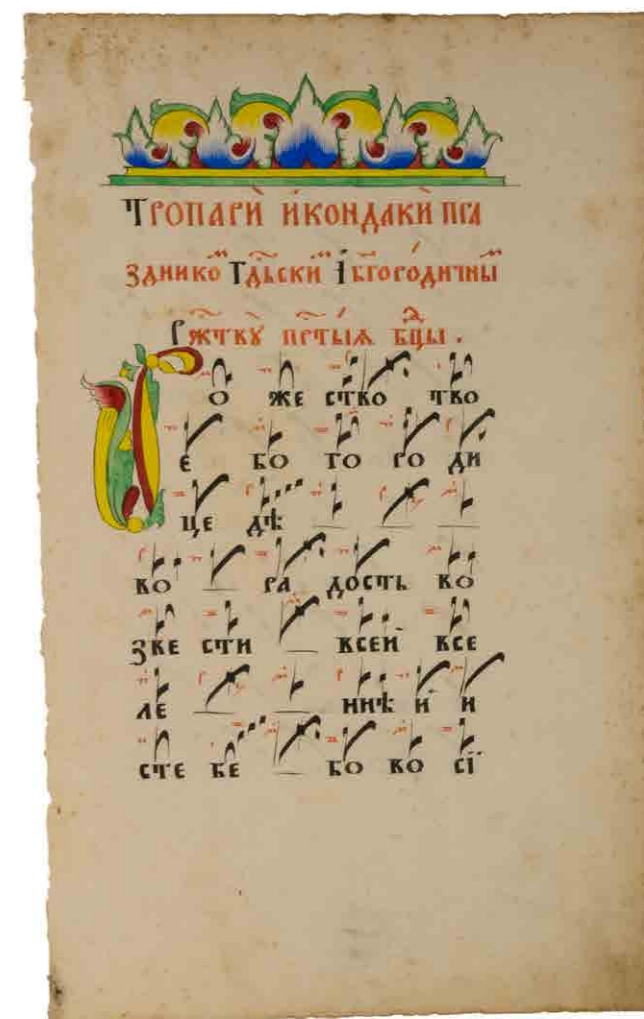 Тропарѝ и҆кондакѝ пра
здникоⷨ Гⷭ҇дьскиⷨ і бг҃ородичныⷨ
Рж҇тву прⷭ҇тыѧ бцⷣы .
Р о же ство тво
е бо го ро ди
це дѣ
во ра дость во
зве сти всей все
ле ннѣ й и
сте бе бо во сї